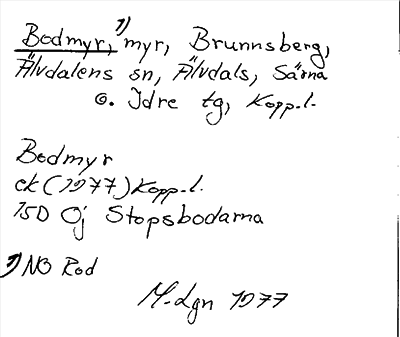 Bodmyr, 1) myr, Brunnsberg,
Älvdalens sn, Älvdals, Särna
o. Idre tg, Kopp.l.
Bodmyr
ek (1977) Kopp.l.
15D Öj Stopsbodarna
1) NB Rod
M-Lgn 1977